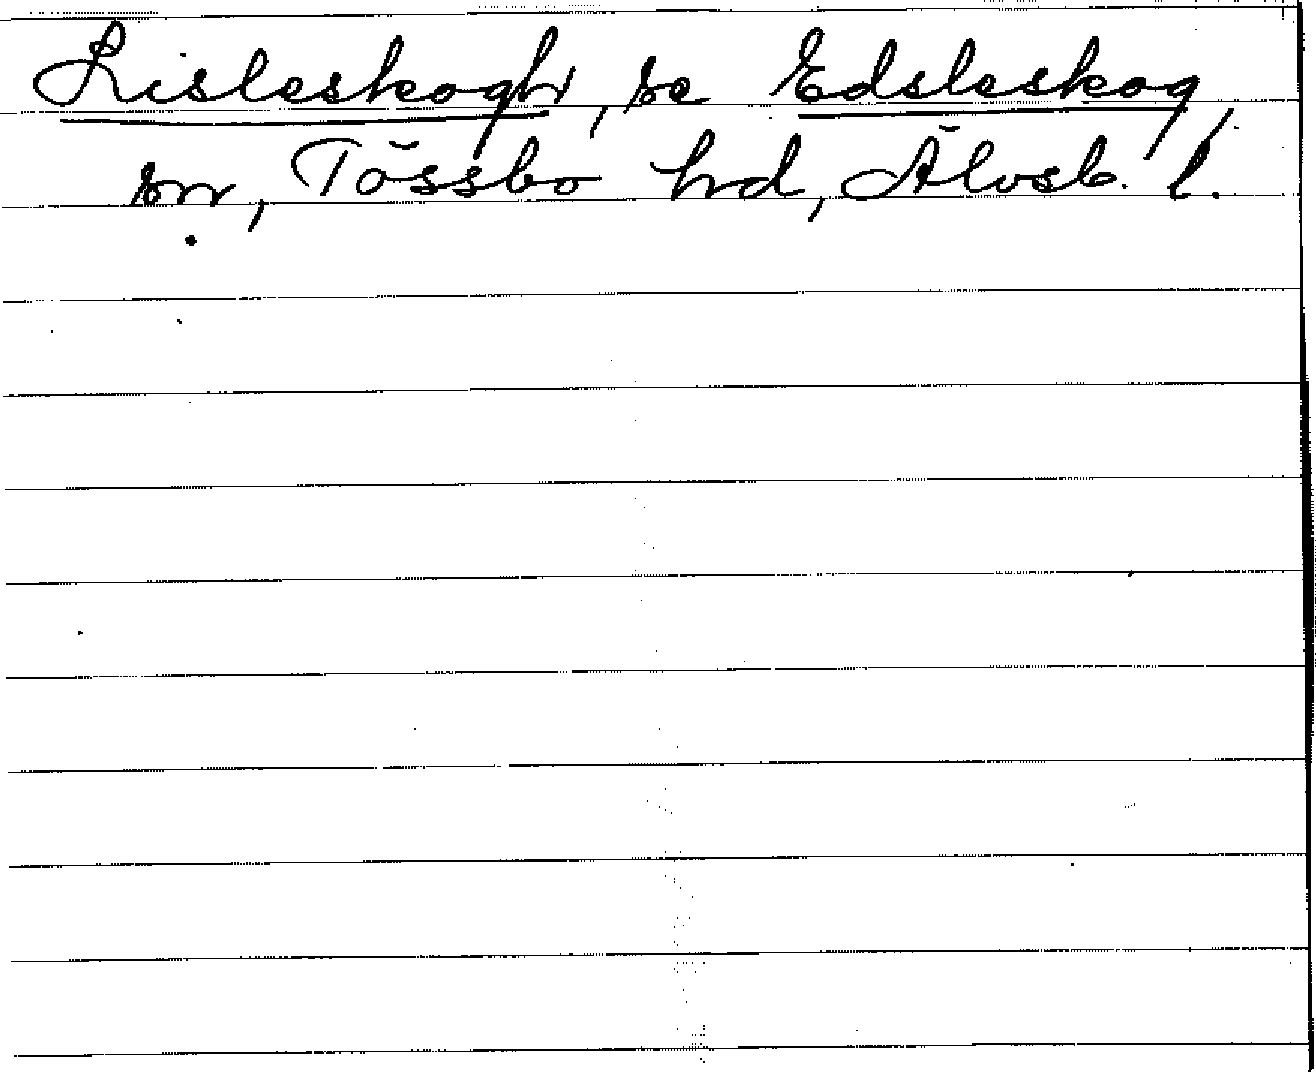 Lisleskogh, se Edsleskog,
sn, Tössbo hd, Älvsb. l.